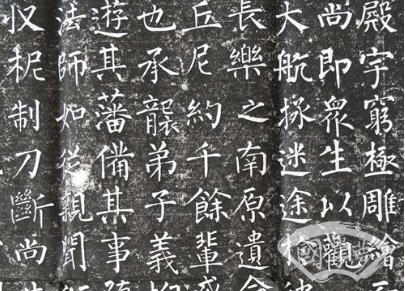 殿宇窮極雕繪
尚即眾生以觀
大航拯迷途
長樂之南原遺
丘尼約千餘輩
也承襲弟子義
遊其藩備其事
法師如從親聞
収柅制刀斷尚